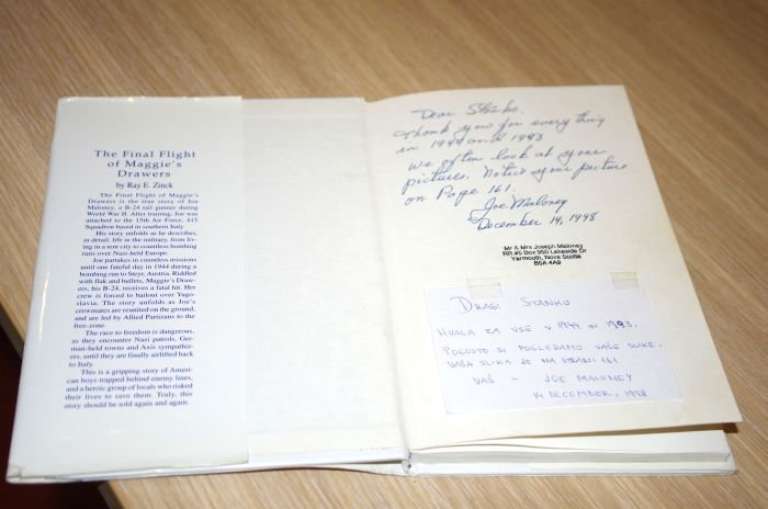 The Final Flight
of Maggie's
Drawers
by Ray E. Zinck
The Final Flight of Maggie's
Drawers is the true story of Joe
Maloney, a B-24 tail gunner during
World War II. After training, Joe was
attached to the 15th Air Force, 415
Squadron based in southern Italy.
His story unfolds as he describes,
in detail, life in the military, from liv-
ing in a tent city to countless bombing
runs over Nazi-held Europe.
Joe partakes in countless missions
until one fateful day in 1944 during a
bombing run to Steyr, Austria. Riddled
with flak and bullets, Maggie's Draw-
ers, his B-24, receives a fatal hit. Her
crew is forced to bailout over Yugo-
slavia. The story unfolds as Joe's
crewmates are reunited on the ground,
and are led by Allied Partizans to the
free-zone.
The race to freedom is dangerous,
as they encounter Nazi patrols, Ger-
man-held towns and Axis sympathiz-
ers, until they are finally airlifted back
to Italy.
This is a gripping story of Ameri-
can boys trapped behind enemy lines,
and a heroic group of locals who risked
their lives to save them. Truly, this
story should be told again and again.
Dear Stanko,
Thank you for everything
in 1944 and 1993
We often look at your
pictures. Notice your picture
on Page 161.
Joe Maloney
December 14, 1998
Mr & Mrs Joseph Maloney
RR #5 Box 950 Lakeside Dr
Yarmouth, Nova Scotia
B5A 4A9
DRAGI STANKO
HVALA ZA VSE V 1944 IN 1993.
POGOSTO SI POGLEDAMO VAŠE SLIKE.
VAŠA SLIKA JE NA STRANI 161.
VAŠ - JOE MALONEY
14 DECEMBER, 1998